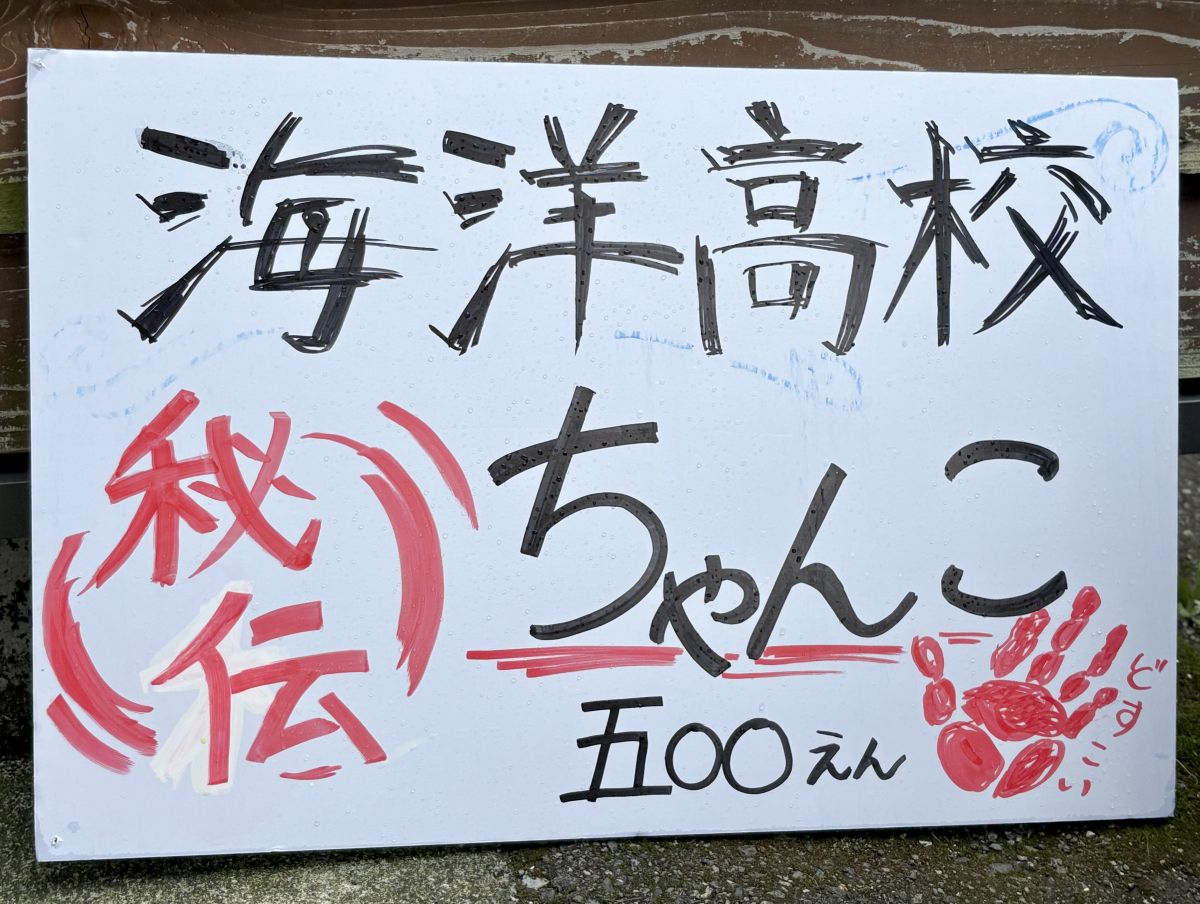 海洋高校
秘伝
ちゃんこ
五〇〇えん
どすこい